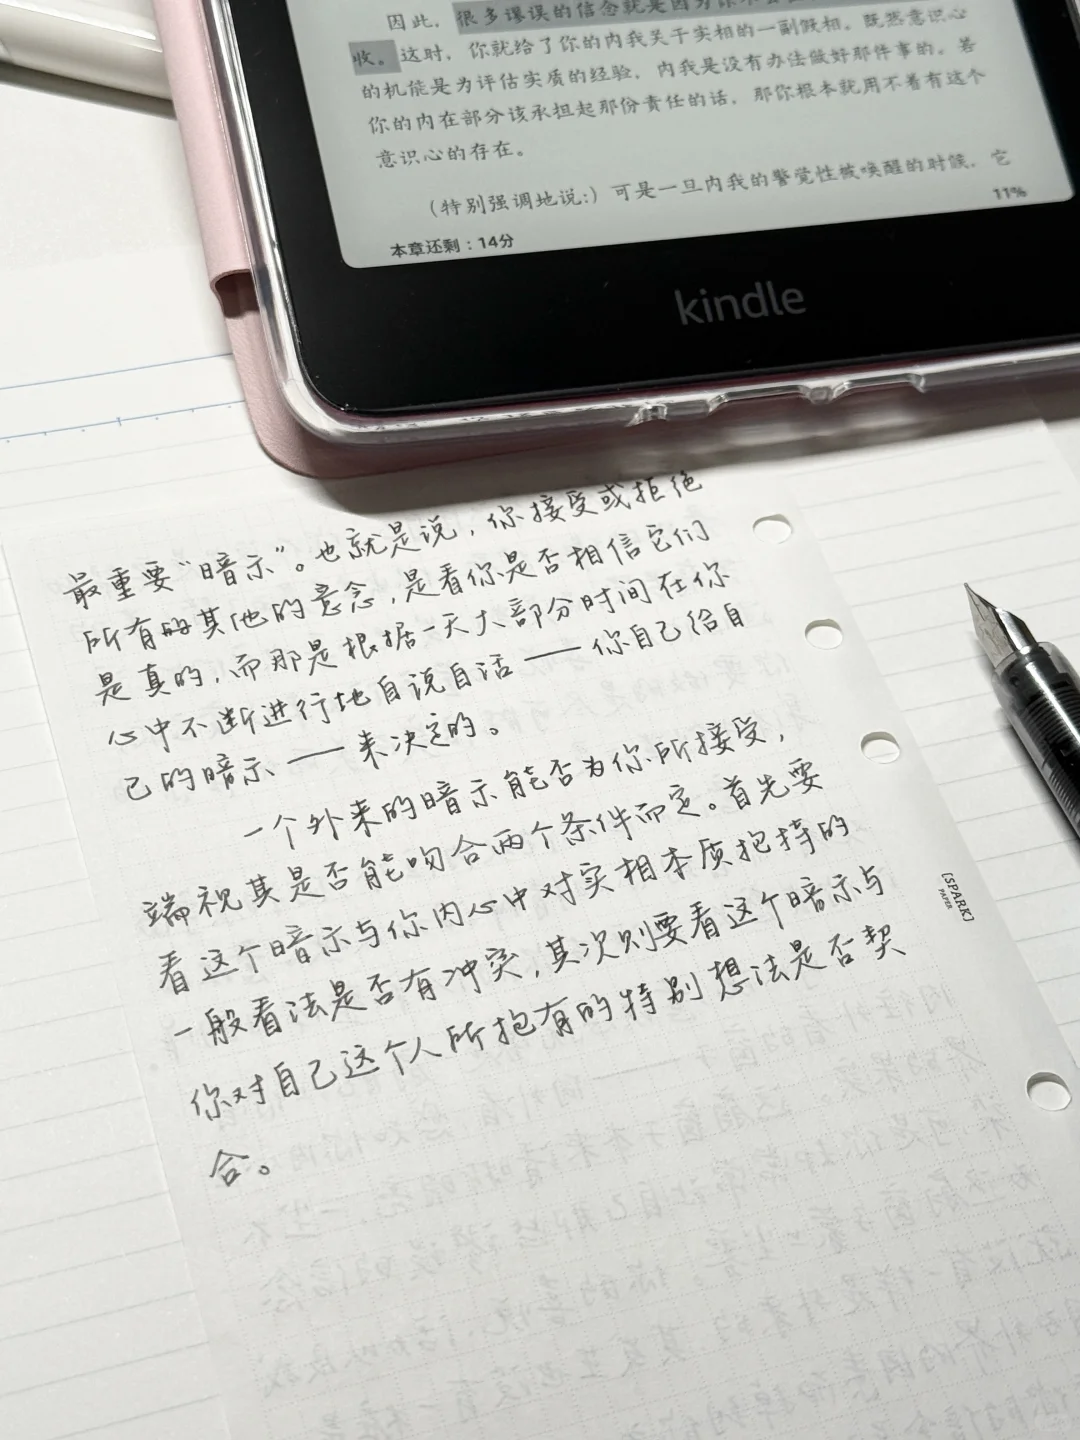 因此，很多谬误的信念就是因为你不会
收。这时，你就给了你的内我关于实相的一副假相。既然意识心
的机能是为评估实质的经验，内我是没有办法做好那件事的。若
你的内在部分该承担起那份责任的话，那你根本就用不着有这个
意识心的存在。
（特别强调地说：）可是一旦内我的警觉性被唤醒的时候，它
本章还剩：14分
11%
kindle
最重要“暗示”。也就是说，你接受或拒绝
所有的其他的意念，是看你是否相信它们
是真的，而那是根据一天大部分时间在你
心中不断进行地自说自话——你自己给自
己的暗示——来决定的。
一个外来的暗示能否为你所接受，
端视其是否能吻合两个条件而定。首先要
看这个暗示与你内心中对实相本质抱持的
一般看法是否有冲突，其次则要看这个暗示与
你对自己这个人所抱有的特别想法是否契
合。
[SPARK]
PAPER